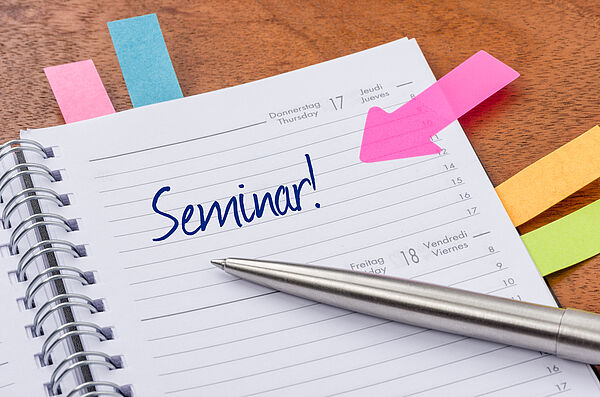 Donnerstag 17 Jeudi
Thursday Jueves
8
12
14
15
17
Seminar!
Freitag 18 Vendredi
day Viernes
8
9
10
11
16
17